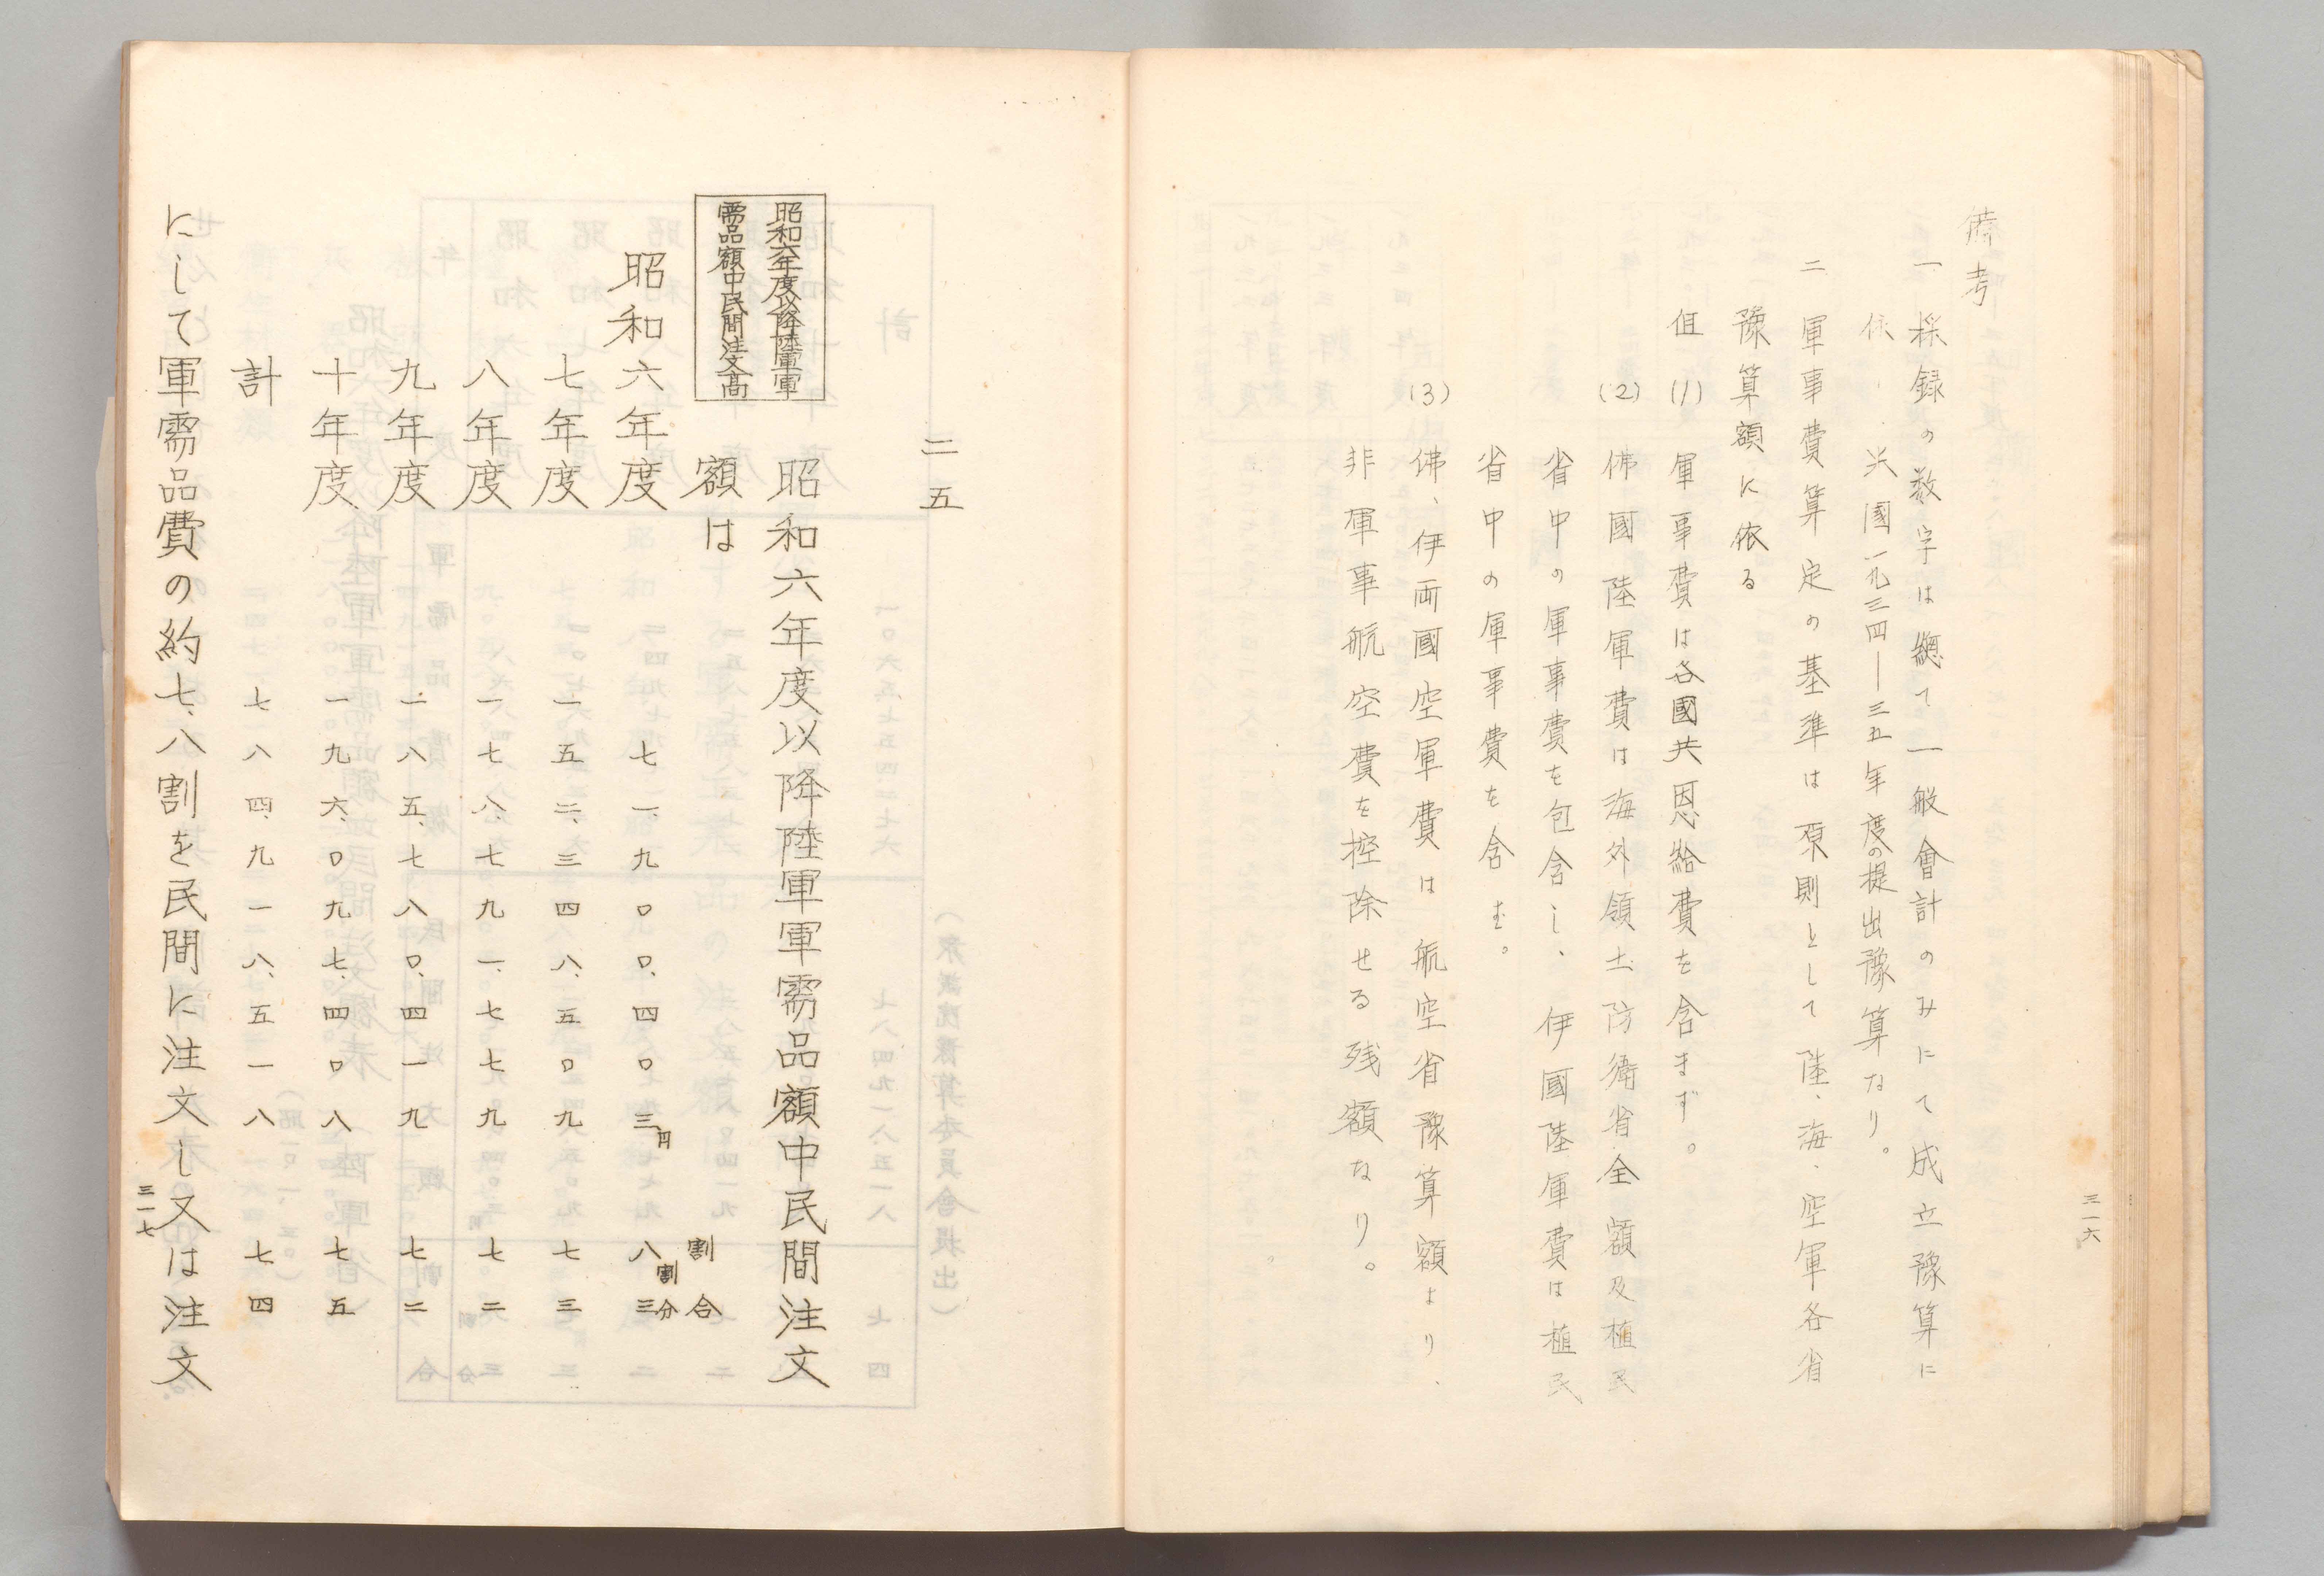 備考
一 採録の数字は總て一般會計のみにて成立豫算に
依 米國一九三四―三五年度の提出豫算なり。
二 軍事費算定の基準は原則として陸、海、空軍各省
豫算額に依る
但 (1) 軍事費は各國共恩給費を含まず。
(2) 佛國陸軍費は海外領土防衛省全額及植民
省中の軍事費を包含し、伊國陸軍費は植民
省中の軍事費を含む。
(3) 佛、伊両國空軍費は航空省豫算額より、
非軍事航空費を控除せる残額なり。
三一六
二五
昭和六年度以降陸軍軍
需品額中民間注文高
昭和六年度以降陸軍軍需品額中民間注文
額は 割合
昭和六年度 七一、九〇〇、四〇三円 八割三分
七年度 一五二、三四八、五〇九 七三
八年度 一七八、七九一、七七九 七二
九年度 一八五、七八〇、四一九 七二
十年度 一九六、〇九七、四〇八 七五
計 七八四、九一八、五一八 七四
にして軍需品費の約七、八割を民間に注文し又は注文
三一七